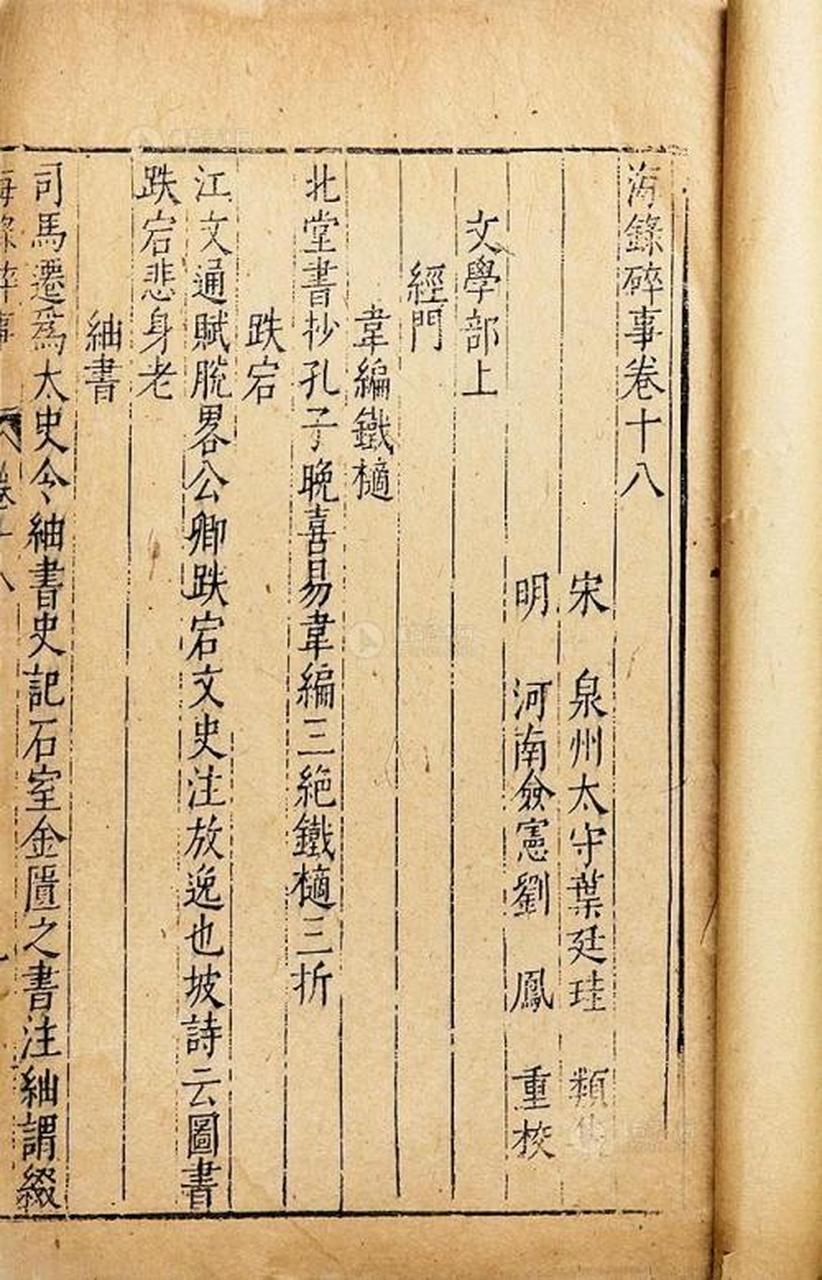 海錄碎事卷十八
宋 泉州太守葉廷珪 類
明 河南僉憲劉 鳳 重校
文學部上
經門
韋編鐵樀
北堂書抄孔子晚喜易韋編三絶鐵樀三折
跌宕
江文通賦脫畧公卿跌宕文史注放逸也坡詩云圖書
跌宕悲身老
紬書
司馬遷爲太史令紬書史記石室金匱之書注紬謂綴